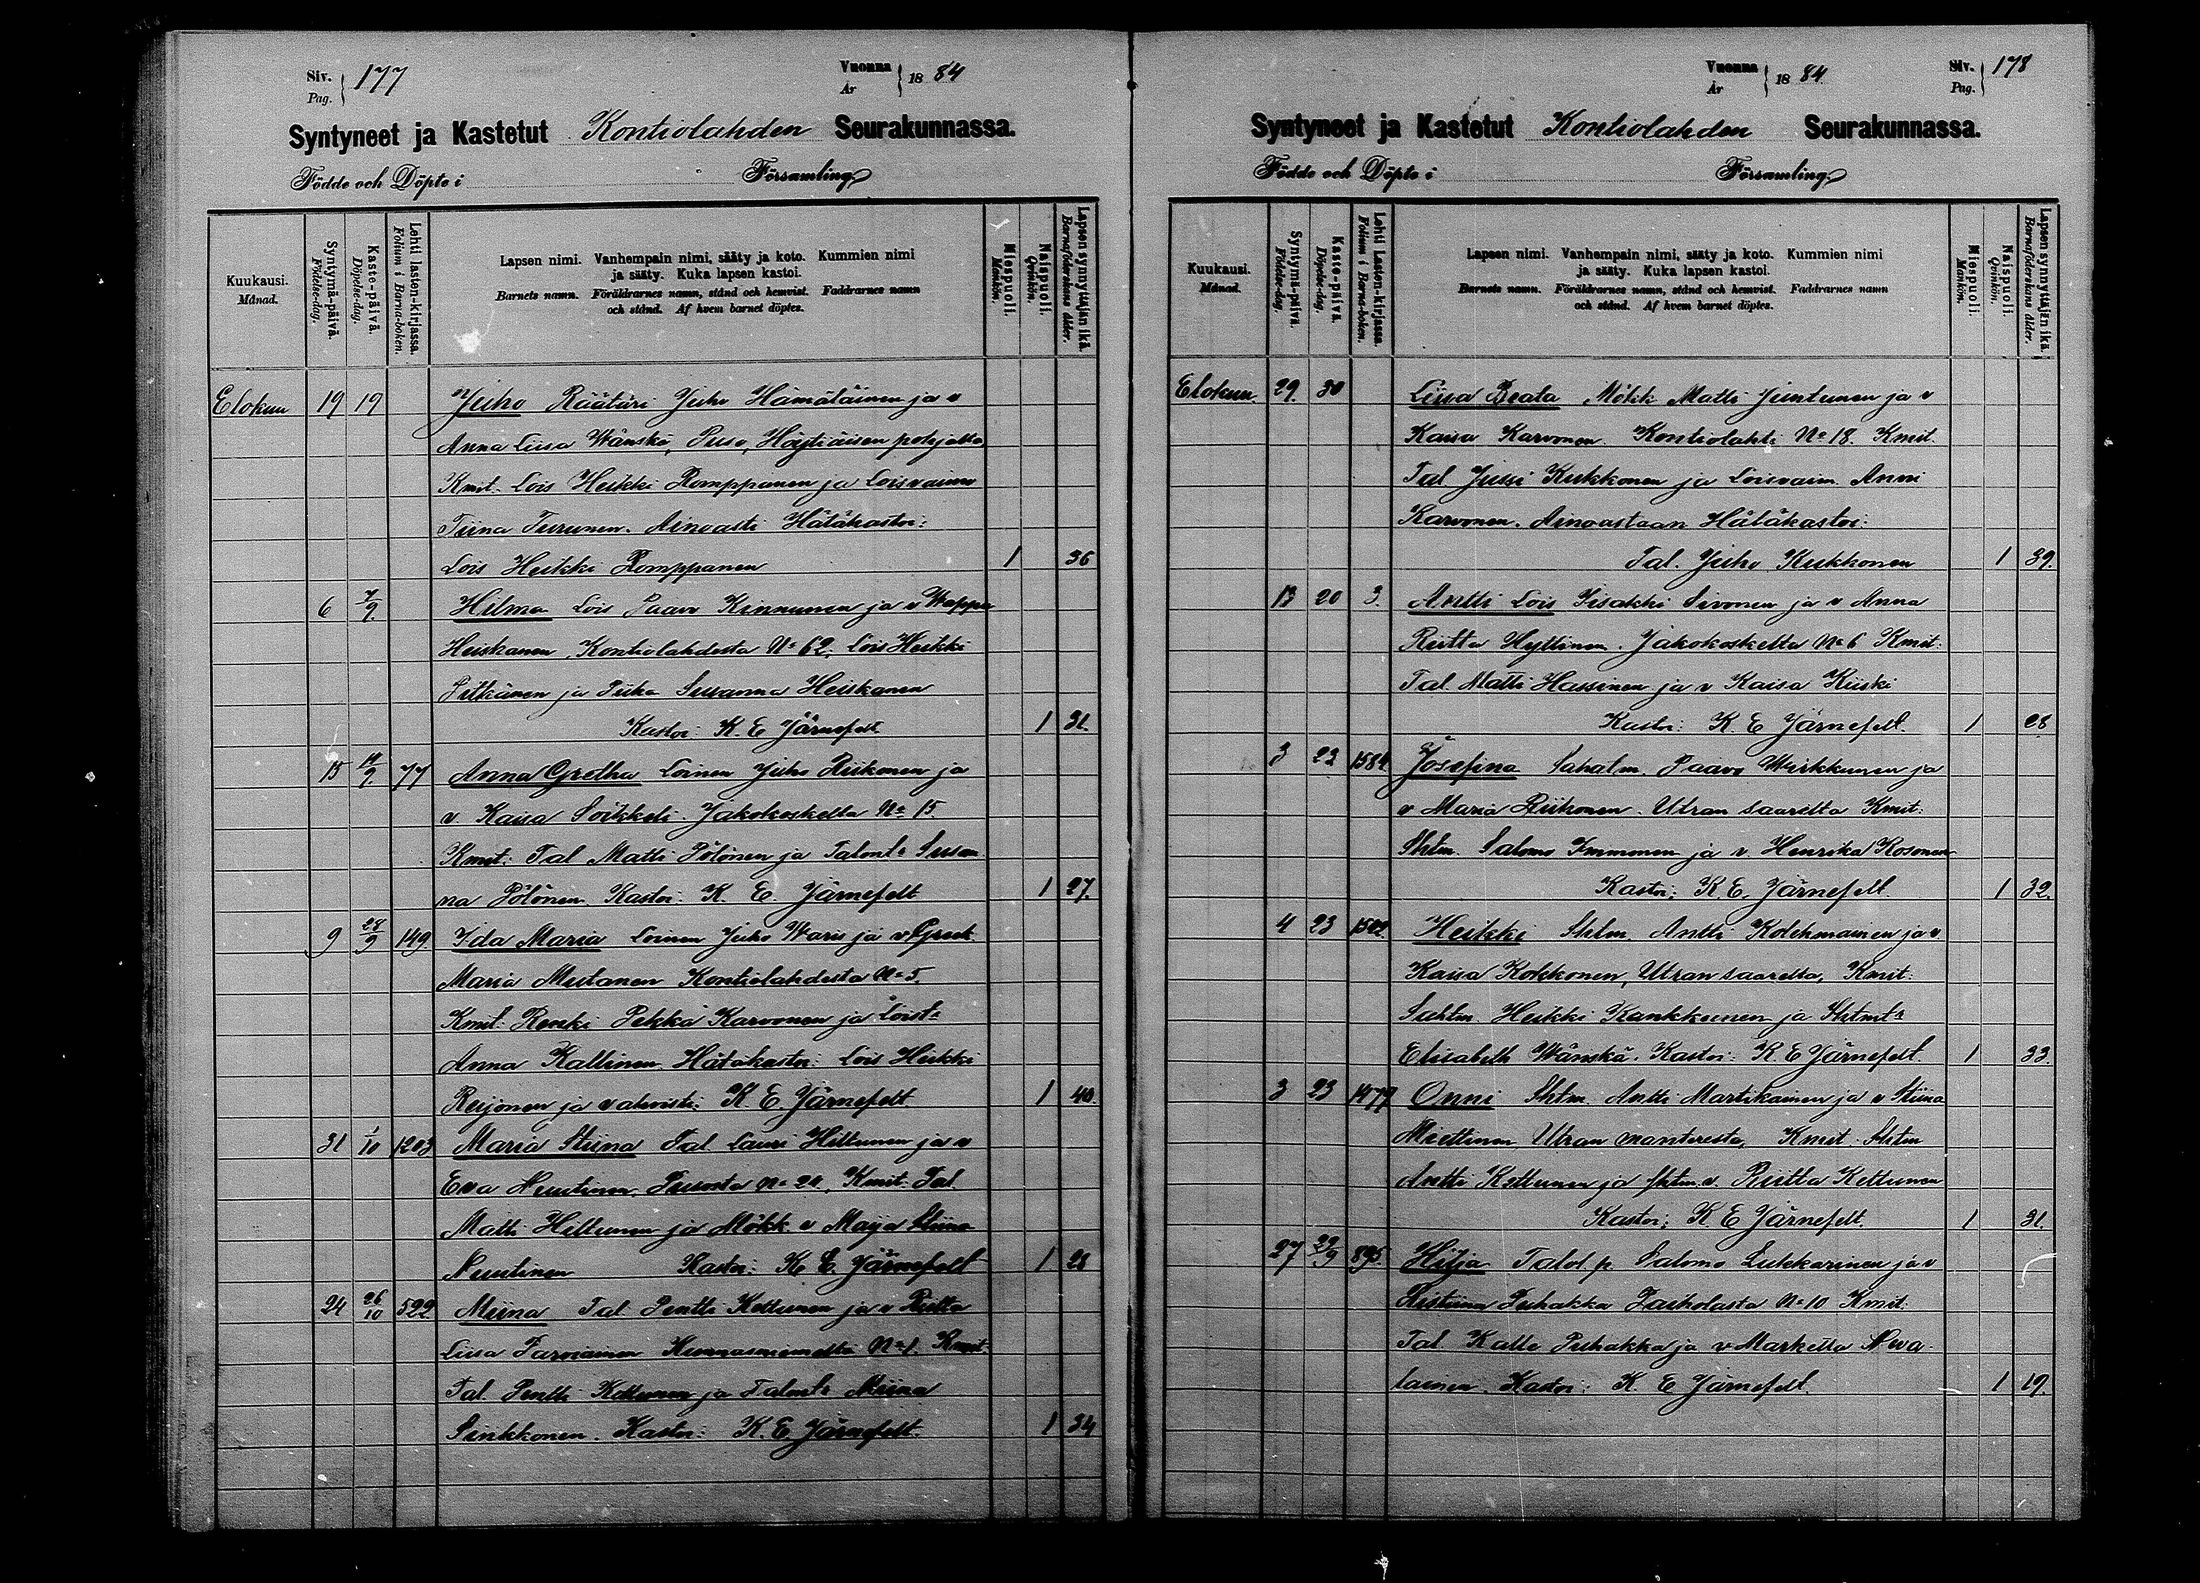 Siv. Pag. 177
Vuonna År 1884
Syntyneet ja Kastetut Kontiolahden Seurakunnassa.
Födde och Döpte i Församling
Kuukausi. Månad.
Syntymä-päivä. Födelse-dag.
Kaste-päivä. Döpelse-dag.
Lehti lasten-kirjassa. Folium i Barna-boken.
Lapsen nimi. Vanhempain nimi, sääty ja koto. Kummien nimi
ja sääty. Kuka lapsen kastoi.
Barnets namn. Föräldrarnes namn, stånd och hemvist. Faddrarnes namn
och stånd. Af hvem barnet döptes.
Miespuoli. Mankön.
Naispuoli. Qvinkön.
Lapsen synnyttäjän ikä. Barnaföderskans ålder.
Elokuu 19 19 Juho Räätäri Juho Hämäläinen ja v
Anna Liisa Wänskä, Puso, Höytiäisen pohjalta
Kmit. Lois Heikki Romppanen ja Loisvaimo
Tiina Turunen. Ainoasti Hätäkastoi:
Lois Heikki Romppanen 1 36
6 7/9 Hilma Lois Paavo Kinnunen ja v Wappu
Heiskanen, Kontiolahdesta No 62, Lois Heikki
Pitkänen ja Piika Susanna Heiskanen
Kastoi: K. E Järnefelt 1 31.
15 14/9. 77 Anna Gretha Loinen Juho Riikonen ja
v Kaisa Soikkeli. Jakokoskelta No 15.
Kmit: Tal Matti Pölönen ja Talont: Susan
na Pölönen. Kastoi: K. E. Järnefelt 1 27.
9 28/9 149 Ida Maria Loinen Juho Waris ja v Greet.
Maria Mustonen Kontiolahdesta No 5.
Kmit: Renki Pekka Karvonen ja Loist:
Anna Kallinen. Hätäkastoi: Lois Heikki
Reijonen ja vahvisti: K. E. Järnefelt 1 40.
31 1/10 1203 Maria Stiina Tal. Lauri Hiltunen ja v
Eva Nuutinen, Pusosta No 20, Kmit: Tal.
Matti Hiltunen ja Mökk. v Maija Stiina
Nuutinen Kastoi: K. E. Järnefelt 1 28
24 26/10 522 Miina Tal Pentti Kettunen ja v Riitta
Liisa Parviainen Kunnasniemeltä No 1. Kmit
Tal. Pentti Kettunen ja Talont: Miina
Sinkkonen. Kastoi: K. E. Järnefelt. 1 34
Vuonna År 1884
Siv. Pag. 178
Syntyneet ja Kastetut Kontiolahden Seurakunnassa.
Födde och Döpte i Församling
Kuukausi. Månad.
Syntymä-päivä. Födelse-dag.
Kaste-päivä. Döpelse-dag.
Lehti Lasten-kirjassa. Folium i Barna-boken.
Lapsen nimi. Vanhempain nimi, sääty ja koto. Kummien nimi
ja sääty. Kuka lapsen kastoi.
Barnets namn. Föräldrarnes namn, stånd och hemvist. Faddrarnes namn
och stånd. Af hvem barnet döptes.
Miespuoli. Mankön.
Naispuoli. Qvinkön.
Lapsen synnyttäjän ikä. Barnaföderskans ålder.
Elokuu. 29. 30 Liisa Beata Mökk Matti Juntunen ja v
Kaisa Karvonen. Kontiolahti No 18. Kmit.
Tal Jussi Kukkonen ja Loisvaim. Anni
Karvonen. Ainoastaan Hätäkastoi:
Tal. Juho Kukkonen 1 39.
13 20 3. Antti Lois Iisakki Sivonen ja v Anna
Riitta Hyttinen. Jakokoskelta No 6 Kmit:
Tal. Matti Hassinen ja v Kaisa Kiiski
Kastoi: K. E Järnefelt. 1 28
3 23 1584 Josefina Sahalm. Paavo Wirkkunen ja
v Maria Riikonen. Utran saarelta Kmit:
Shlm. Salomo Immonen ja v. Henrika Kosonen
Kastoi: K. E. Järnefelt. 1 32.
4 23 Heikki Shlm. Antti Kolehmainen ja v.
Kaisa Kokkonen, Utran saarelta, Kmit:
Sahlm. Heikki Kankkunen ja
Elisabeth Wänskä. Kastoi: K E Järnefelt. 1 33.
3 23 1477 Onni Shlm. Antti Martikainen ja v Stiina
Miettinen, Utran manteresta, Kmit. Shlm
Antti Kettunen ja Shlm. v. Riitta Kettunen
Kastoi: K. E Järnefelt. 1 31.
27 895 Hilja Talol. p. Salomo Lukkarinen ja v
Ristiina Puhakka Paiholasta No 10 Kmit:
Tal. Kalle Puhakka ja v Marketta Neva-
lainen. Kastoi: K. E Järnefelt. 1 19.